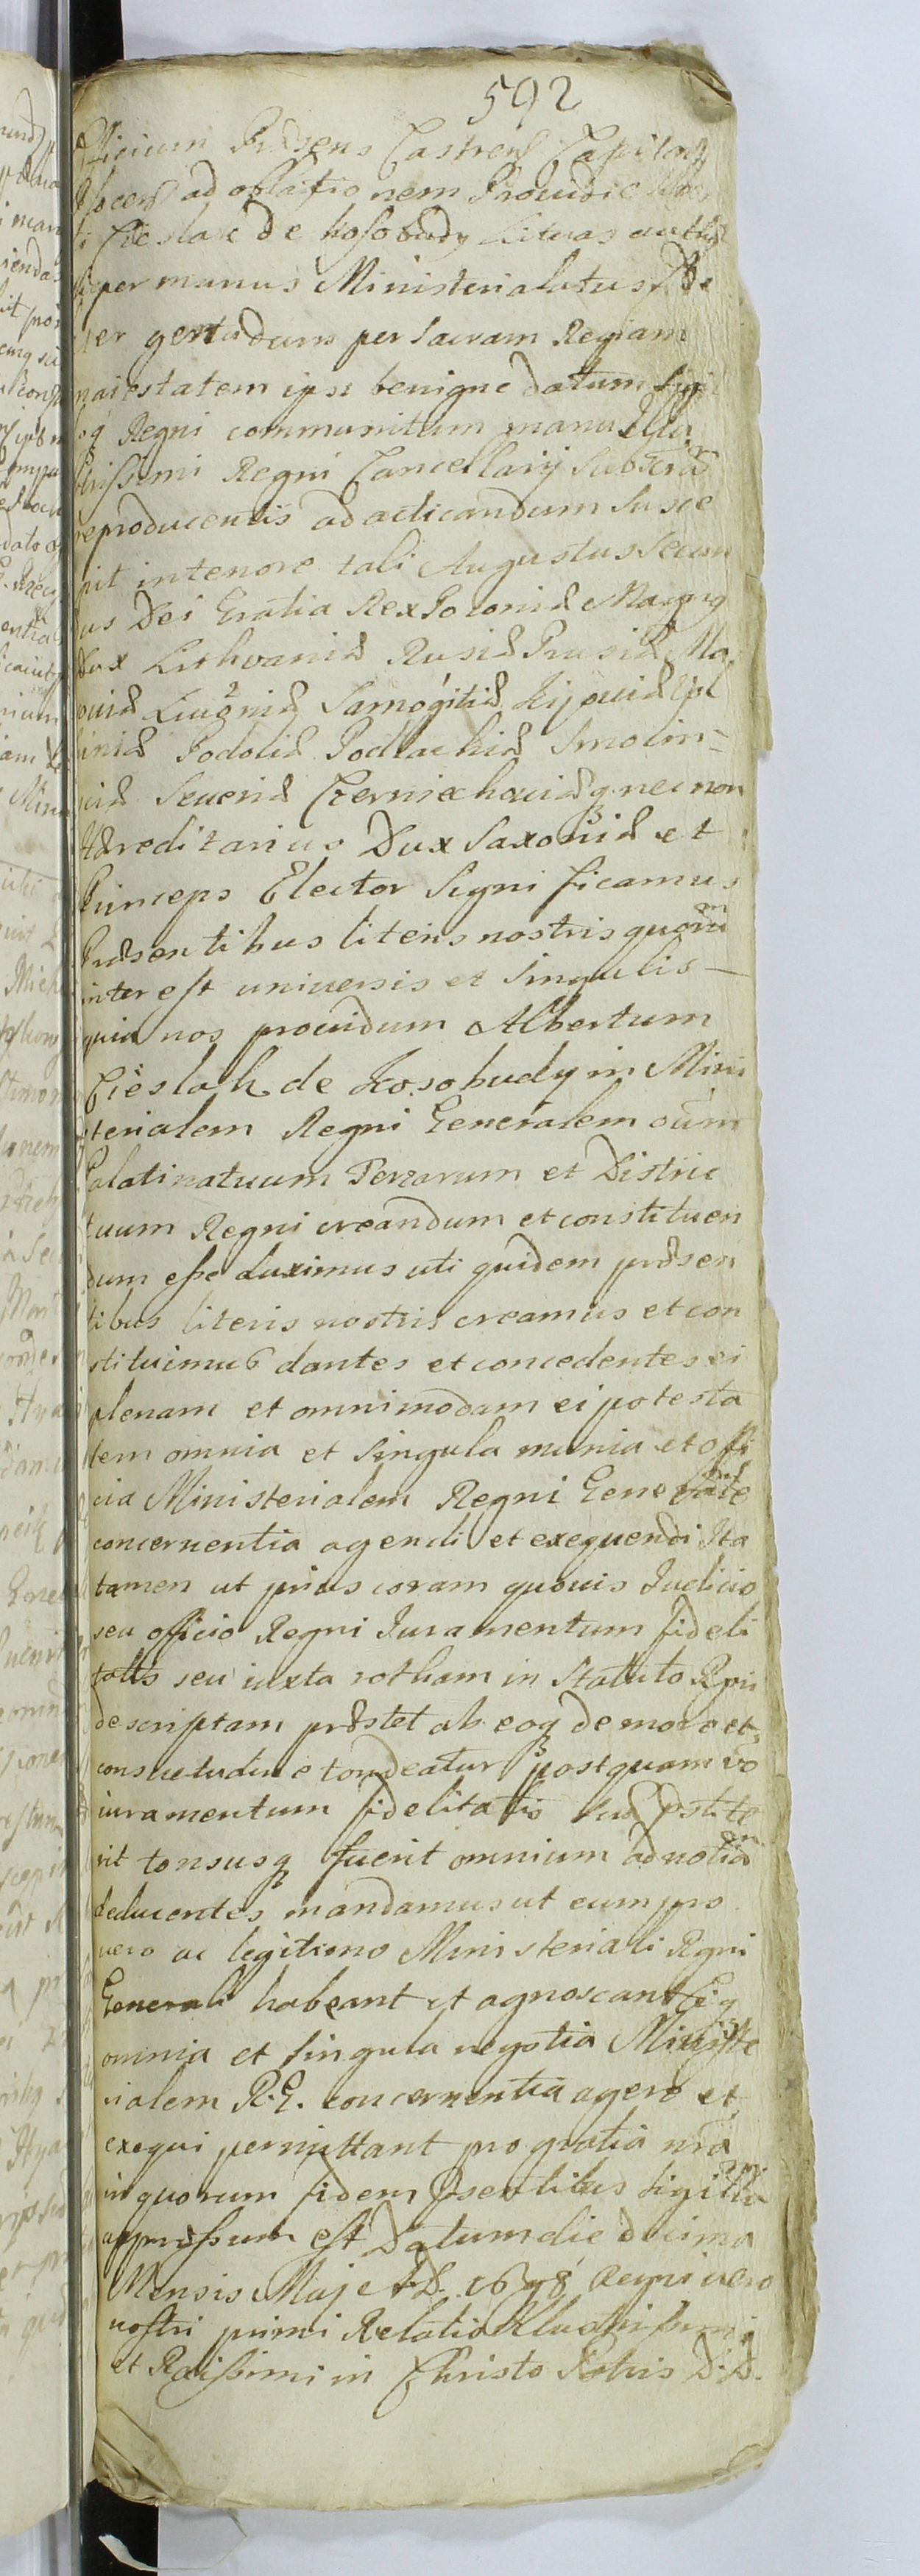 592
fficium Præsens Castrens Capitan
ad oblationem Prouidi
Cieslak de Kosobudy Literas auth
per manus Ministerialatus
ter gerendum per Sacram Regiam
maiestatem ipsi benigne datum sigi
loq Regni communitum manu Illu
strissimi Regni Cancellarij Subscra
reproducentis ad acticandum Susce
pit in tenore tali Augustus Secun
dus Dei Gratia Rex Poloniæ Magnq
Dux Lithvaniæ Rusiæ Prusiæ Ma
ouiæ Liuoniæ Samogitiæ Kijouiæ Vol
iniæ Podoliæ Podlachiæ Smolin=
ciæ Seueriæ Czerniechouiæq necnon
Hæreditarius Dux Saxoniæ et
Princeps Elector Significamus
Præsentibus literis nostris quoru
interest universis et Singulis —
quia nos prouidum Albertum
Cieslak de Kosobudy in Mini
sterialem Regni Generalem oum
Palatinatuum Terrarum et Distric
tuum Regni creandum et constituen
dum esse duximus uti quidem præsen
tibus literis nostris creamus et con
stituimus dantes et concedentes ei
plenam et omnimodam ei potesta
tem omnia et Singula munia et offi
cia Ministerialem Regni Generale
concernentia agendi et exequendi Ita
tamen ut prius coram quouis Iudicio
seu officio Regni Iuramentum fideli
tatis seu iuxta rotham in Statuto Rgni
descriptam præstet ab eoq de more et
consuetudine tondeatur postquam vo
iuramentum fidelitatis pstite
rit tonsusq fuerit omnium ad notia
deducentes mandamus ut eum pro
vero ac legitimo Ministeriali Rgni
Generali habeant et agnoscant Eiq
omnia et singula negotia Ministe
rialem R. G. concernentia agere et
exequi permittant pro gratia nra
in quorum fidem Psentibus sigillu
appressum est Datum die decima
Mensis Maij A.D. 1698 Regni vero
nostri primi Relatio Illustrissimi
et Rdissimi in Christo Patris D. D.